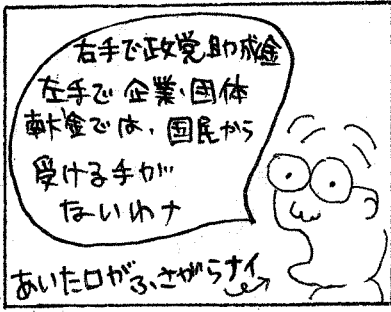 右手で政党助成金
左手で企業・団体
献金では、国民から
受ける手が
ないわナ
あいた口がふさがらナイ